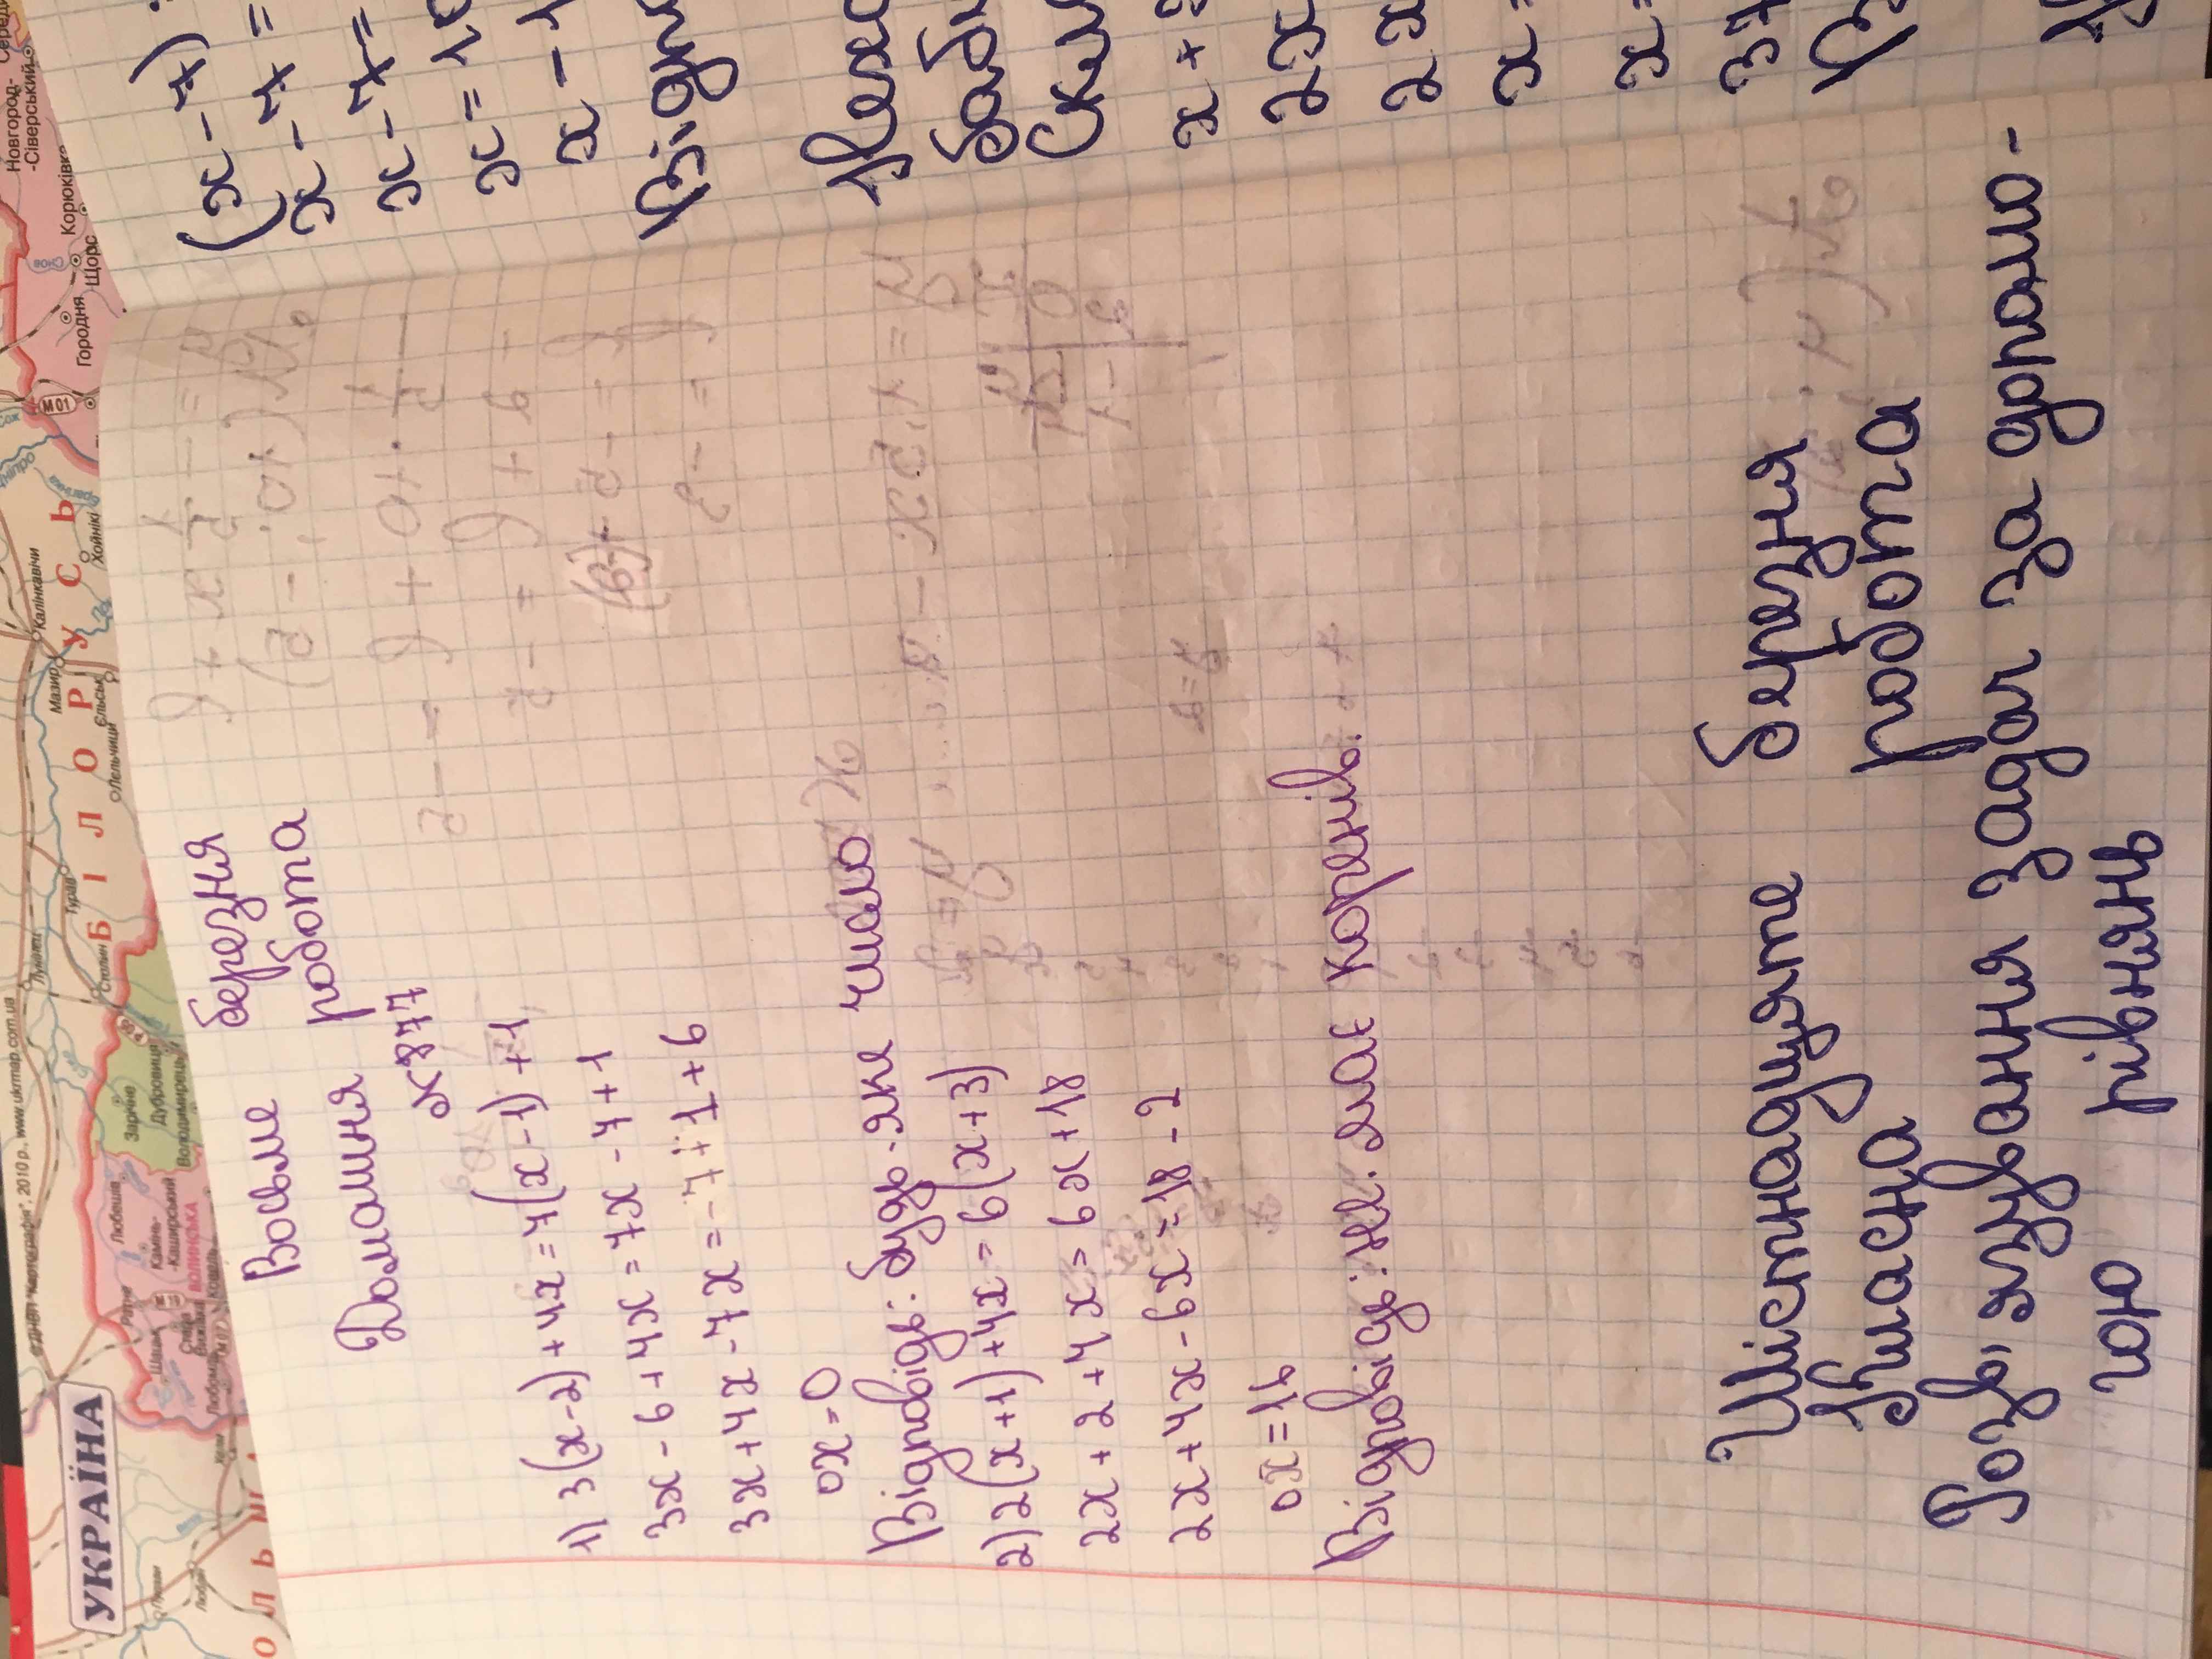 Восьме березня
Домашня робота
№877
1) 3(x-2)+4x=7(x-1)+1
3x-6+4x=7x-7+1
3x+4x-7x=-7+1+6
0x=0
Відповідь: будь-яке число
2) 2(x+1)+4x=6(x+3)
2x+2+4x=6x+18
2x+4x-6x=18-2
0x=16
Відповідь: не має коренів.
Шістнадцяте березня
Класна робота
Розв'язування задач за допомо-
гою рівнянь
(x-7)
x-7=
x-7=
x=10
x-1
Відпо
x+
2x
2x
x=
x=
37
УКРАЇНА
ДНВП "Картографія", 2010 р., www.ukrmap.com.ua
БІЛОРУСЬ
Новгород-
-Сіверський
Корюківка
Щорс
Городня
М01
Калінкавічи
Хойнікі
Мазир
Єльськ
Лельчиці
Тураў
Столин
Лунинец
Зарічне
Дубровиця
Володимирець
Любешів
Камінь-
-Каширський
ВОЛИНСЬКА
Ковель
Ратне
Шацьк
Любомль
Люблін